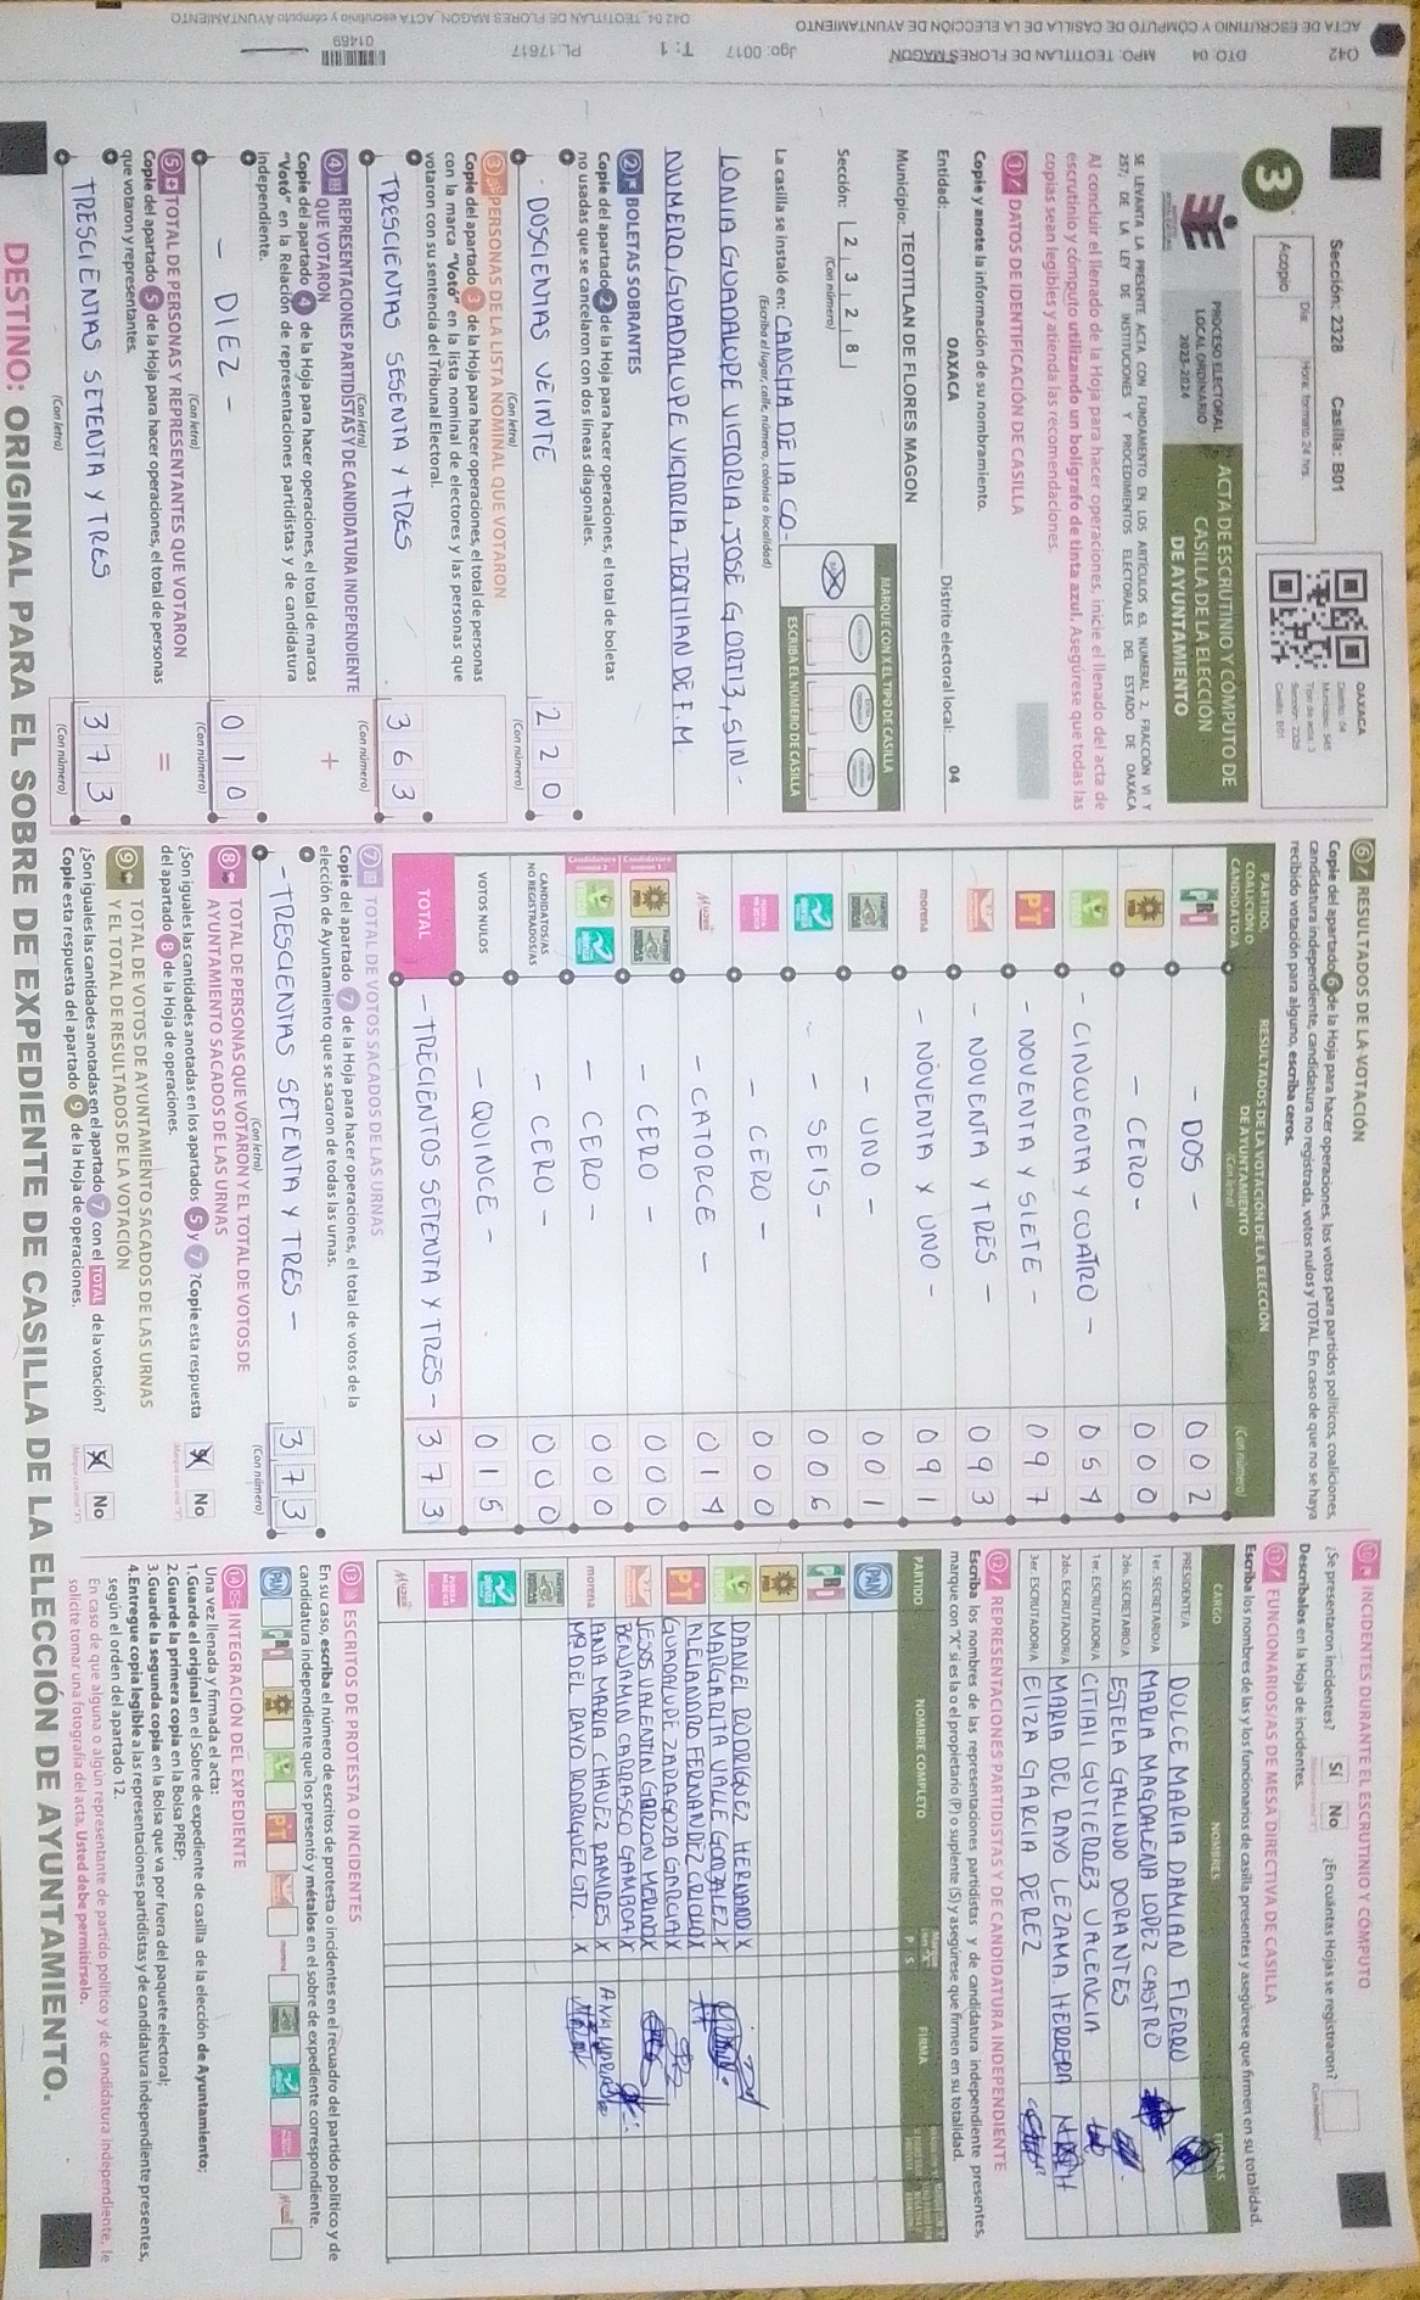 Sección: 2328 Casilla: B01
3
Día: Hora: formato 24 hrs.
Acopio
OAXACA
Distrito: 04
Municipio: 545
Tipo de acta: 3
Sección: 2328
Casilla: B01
PROCESO ELECTORAL
LOCAL ORDINARIO
2023-2024
ACTA DE ESCRUTINIO Y CÓMPUTO DE
CASILLA DE LA ELECCIÓN
DE AYUNTAMIENTO
SE LEVANTA LA PRESENTE ACTA CON FUNDAMENTO EN LOS ARTÍCULOS 63, NUMERAL 2, FRACCIÓN VI Y
257, DE LA LEY DE INSTITUCIONES Y PROCEDIMIENTOS ELECTORALES DEL ESTADO DE OAXACA
Al concluir el llenado de la Hoja para hacer operaciones, inicie el llenado del acta de
escrutinio y cómputo utilizando un bolígrafo de tinta azul. Asegúrese que todas las
copias sean legibles y atienda las recomendaciones.
1 DATOS DE IDENTIFICACIÓN DE CASILLA
Copie y anote la información de su nombramiento.
Entidad: OAXACA Distrito electoral local: 04
Municipio: TEOTITLAN DE FLORES MAGON
Sección: 2 3 2 8
(Con número)
MARQUE CON X EL TIPO DE CASILLA
ESCRIBA EL NÚMERO DE CASILLA
La casilla se instaló en: CANCHA DE LA CO-
(Escriba el lugar, calle, número, colonia o localidad)
LONIA GUADALUPE VICTORIA, JOSE G ORTIZ, SIN-
NUMERO, GUADALUPE VICTORIA, TEOTITLAN DE F.M
2 BOLETAS SOBRANTES
Copie del apartado 2 de la Hoja para hacer operaciones, el total de boletas
no usadas que se cancelaron con dos líneas diagonales.
DOSCIENTAS VEINTE 2 2 0
(Con letra) (Con número)
3 PERSONAS DE LA LISTA NOMINAL QUE VOTARON
Copie del apartado 3 de la Hoja para hacer operaciones, el total de personas
con la marca "Votó" en la lista nominal de electores y las personas que
votaron con su sentencia del Tribunal Electoral.
TRESCIENTAS SESENTA Y TRES 3 6 3
(Con letra) (Con número)
4 REPRESENTACIONES PARTIDISTAS Y DE CANDIDATURA INDEPENDIENTE
QUE VOTARON +
Copie del apartado 4 de la Hoja para hacer operaciones, el total de marcas
"Votó" en la Relación de representaciones partidistas y de candidatura
independiente.
- DIEZ - 0 1 0
(Con letra) (Con número)
5 TOTAL DE PERSONAS Y REPRESENTANTES QUE VOTARON =
Copie del apartado 5 de la Hoja para hacer operaciones, el total de personas
que votaron y representantes.
TRESCIENTAS SETENTA Y TRES 3 7 3
(Con letra) (Con número)
6 RESULTADOS DE LA VOTACIÓN
Copie del apartado 6 de la Hoja para hacer operaciones, los votos para partidos políticos, coaliciones,
candidatura independiente, candidatura no registrada, votos nulos y TOTAL. En caso de que no se haya
recibido votación para alguno, escriba ceros.
PARTIDO,
COALICIÓN O
CANDIDATO/A
RESULTADOS DE LA VOTACIÓN DE LA ELECCIÓN
DE AYUNTAMIENTO
(Con letra) (Con número)
PRI - DOS - 0 0 2
PRD - CERO - 0 0 0
- CINCUENTA Y CUATRO - 0 5 4
PT - NOVENTA Y SIETE - 0 9 7
- NOVENTA Y TRES - 0 9 3
morena - NOVENTA Y UNO - 0 9 1
- UNO - 0 0 1
- SEIS - 0 0 6
- CERO - 0 0 0
MUJER - CATORCE - 0 1 4
- CERO - 0 0 0
- CERO - 0 0 0
CANDIDATOS/AS
NO REGISTRADOS/AS - CERO - 0 0 0
VOTOS NULOS - QUINCE - 0 1 5
TOTAL - TRECIENTOS SETENTA Y TRES - 3 7 3
7 TOTAL DE VOTOS SACADOS DE LAS URNAS
Copie del apartado 7 de la Hoja para hacer operaciones, el total de votos de la
elección de Ayuntamiento que se sacaron de todas las urnas.
- TRESCIENTAS SETENTA Y TRES - 3 7 3
(Con letra) (Con número)
8 TOTAL DE PERSONAS QUE VOTARON Y EL TOTAL DE VOTOS DE
AYUNTAMIENTO SACADOS DE LAS URNAS
¿Son iguales las cantidades anotadas en los apartados 5 y 7 ? Copie esta respuesta
del apartado 8 de la Hoja de operaciones.
Sí No
9 TOTAL DE VOTOS DE AYUNTAMIENTO SACADOS DE LAS URNAS
Y EL TOTAL DE RESULTADOS DE LA VOTACIÓN
¿Son iguales las cantidades anotadas en el apartado 7 con el TOTAL de la votación?
Copie esta respuesta del apartado 9 de la Hoja de operaciones.
Sí No
10 INCIDENTES DURANTE EL ESCRUTINIO Y CÓMPUTO
¿Se presentaron incidentes? Sí No ¿En cuántas Hojas se registraron?
Descríbalos en la Hoja de incidentes.
11 FUNCIONARIOS/AS DE MESA DIRECTIVA DE CASILLA
Escriba los nombres de las y los funcionarios de casilla presentes y asegúrese que firmen en su totalidad.
CARGO NOMBRES FIRMAS
PRESIDENTE/A DULCE MARIA DAMIAN FIERRO
1er. SECRETARIO/A MARIA MAGDALENA LOPEZ CASTRO
2do. SECRETARIO/A ESTELA GALINDO DORANTES
1er. ESCRUTADOR/A CITLALI GUTIERREZ VALENCIA
2do. ESCRUTADOR/A MARIA DEL RAYO LEZAMA HERRERA
3er. ESCRUTADOR/A ELIZA GARCIA PEREZ
12 REPRESENTACIONES PARTIDISTAS Y DE CANDIDATURA INDEPENDIENTE
Escriba los nombres de las representaciones partidistas y de candidatura independiente presentes,
marque con "X" si es la o el propietario (P) o suplente (S) y asegúrese que firmen en su totalidad.
PARTIDO NOMBRE COMPLETO P S FIRMA
PAN
PRI
PRD
DANIEL RODRIGUEZ HERNAND X
MARGARITA VALLE GONZALEZ X
PT ALEJANDRO FERNANDEZ CRIOLLO X
GUADALUPE ZARAGOZA GARCIA X
JESUS VALENTIN GARZON MERINO X
BENJAMIN CARRASCO GAMBOA X
morena ANA MARIA CHAVEZ RAMIRES X ANA MARIA
Mª DEL RAYO RODRIGUEZ GTZ X
MUJER
13 ESCRITOS DE PROTESTA O INCIDENTES
En su caso, escriba el número de escritos de protesta o incidentes en el recuadro del partido político y de
candidatura independiente que los presentó y métalos en el sobre de expediente correspondiente.
PAN PRI PRD PT morena
14 INTEGRACIÓN DEL EXPEDIENTE
Una vez llenada y firmada el acta:
1.Guarde el original en el Sobre de expediente de casilla de la elección de Ayuntamiento;
2.Guarde la primera copia en la Bolsa PREP;
3.Guarde la segunda copia en la Bolsa que va por fuera del paquete electoral;
4.Entregue copia legible a las representaciones partidistas y de candidatura independiente presentes,
según el orden del apartado 12.
En caso de que alguna o algún representante de partido político y de candidatura independiente, le
solicite tomar una fotografía del acta, Usted debe permitírselo.
DESTINO: ORIGINAL PARA EL SOBRE DE EXPEDIENTE DE CASILLA DE LA ELECCIÓN DE AYUNTAMIENTO.
ACTA DE ESCRUTINIO Y CÓMPUTO DE CASILLA DE LA ELECCION DE AYUNTAMIENTO
042 DTO 04 MPO: TEOTITLAN DE FLORES MAGON Jgo: 0017 T: 1 PL:17617
042 04_TEOTITLAN DE FLORES MAGON_ACTA escrutinio y cómputo AYUNTAMIENTO
01469